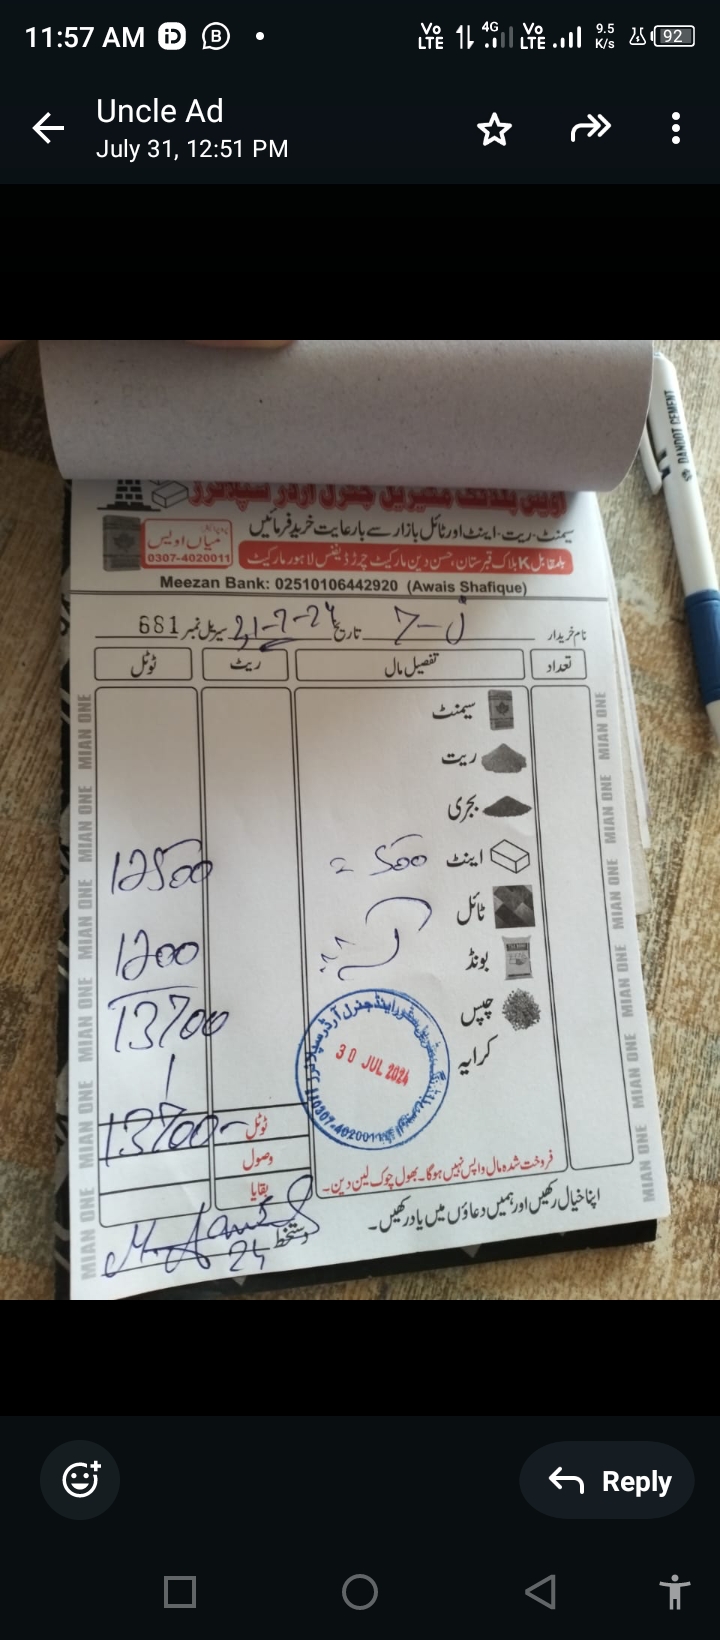 11:57 AM
Vo LTE 4G Vo LTE 9.5 K/s 92
Uncle Ad
July 31, 12:51 PM
DANDOT CEMENT
اویس بلڈنگ میٹریل جنرل آرڈر سپلائرز
سیمنٹ۔ریت۔اینٹ اور ٹائل بازار سے بارعایت خرید فرمائیں
میاں اویس
0307-4020011
بلمقابل K بلاک قبرستان، حسن دین مارکیٹ چرڑ ڈیفنس لاہور مارکیٹ
Meezan Bank: 02510106442920 (Awais Shafique)
نام خریدار تاریخ سیریل نمبر 681
تعداد تفصیل مال ریٹ ٹوٹل
سیمنٹ
ریت
بجری
اینٹ = 500 12500
ٹائل
بونڈ 1200
چپس 13700
کرایہ
30 JUL 2024
ٹوٹل 13700
وصول
بقایا
فروخت شدہ مال واپس نہیں ہوگا۔ بھول چوک لین دین۔
اپنا خیال رکھیں اور ہمیں دعاؤں میں یاد رکھیں۔
دستخط
24
MIAN ONE MIAN ONE MIAN ONE MIAN ONE MIAN ONE MIAN ONE
MIAN ONE MIAN ONE MIAN ONE MIAN ONE MIAN ONE MIAN ONE
Reply